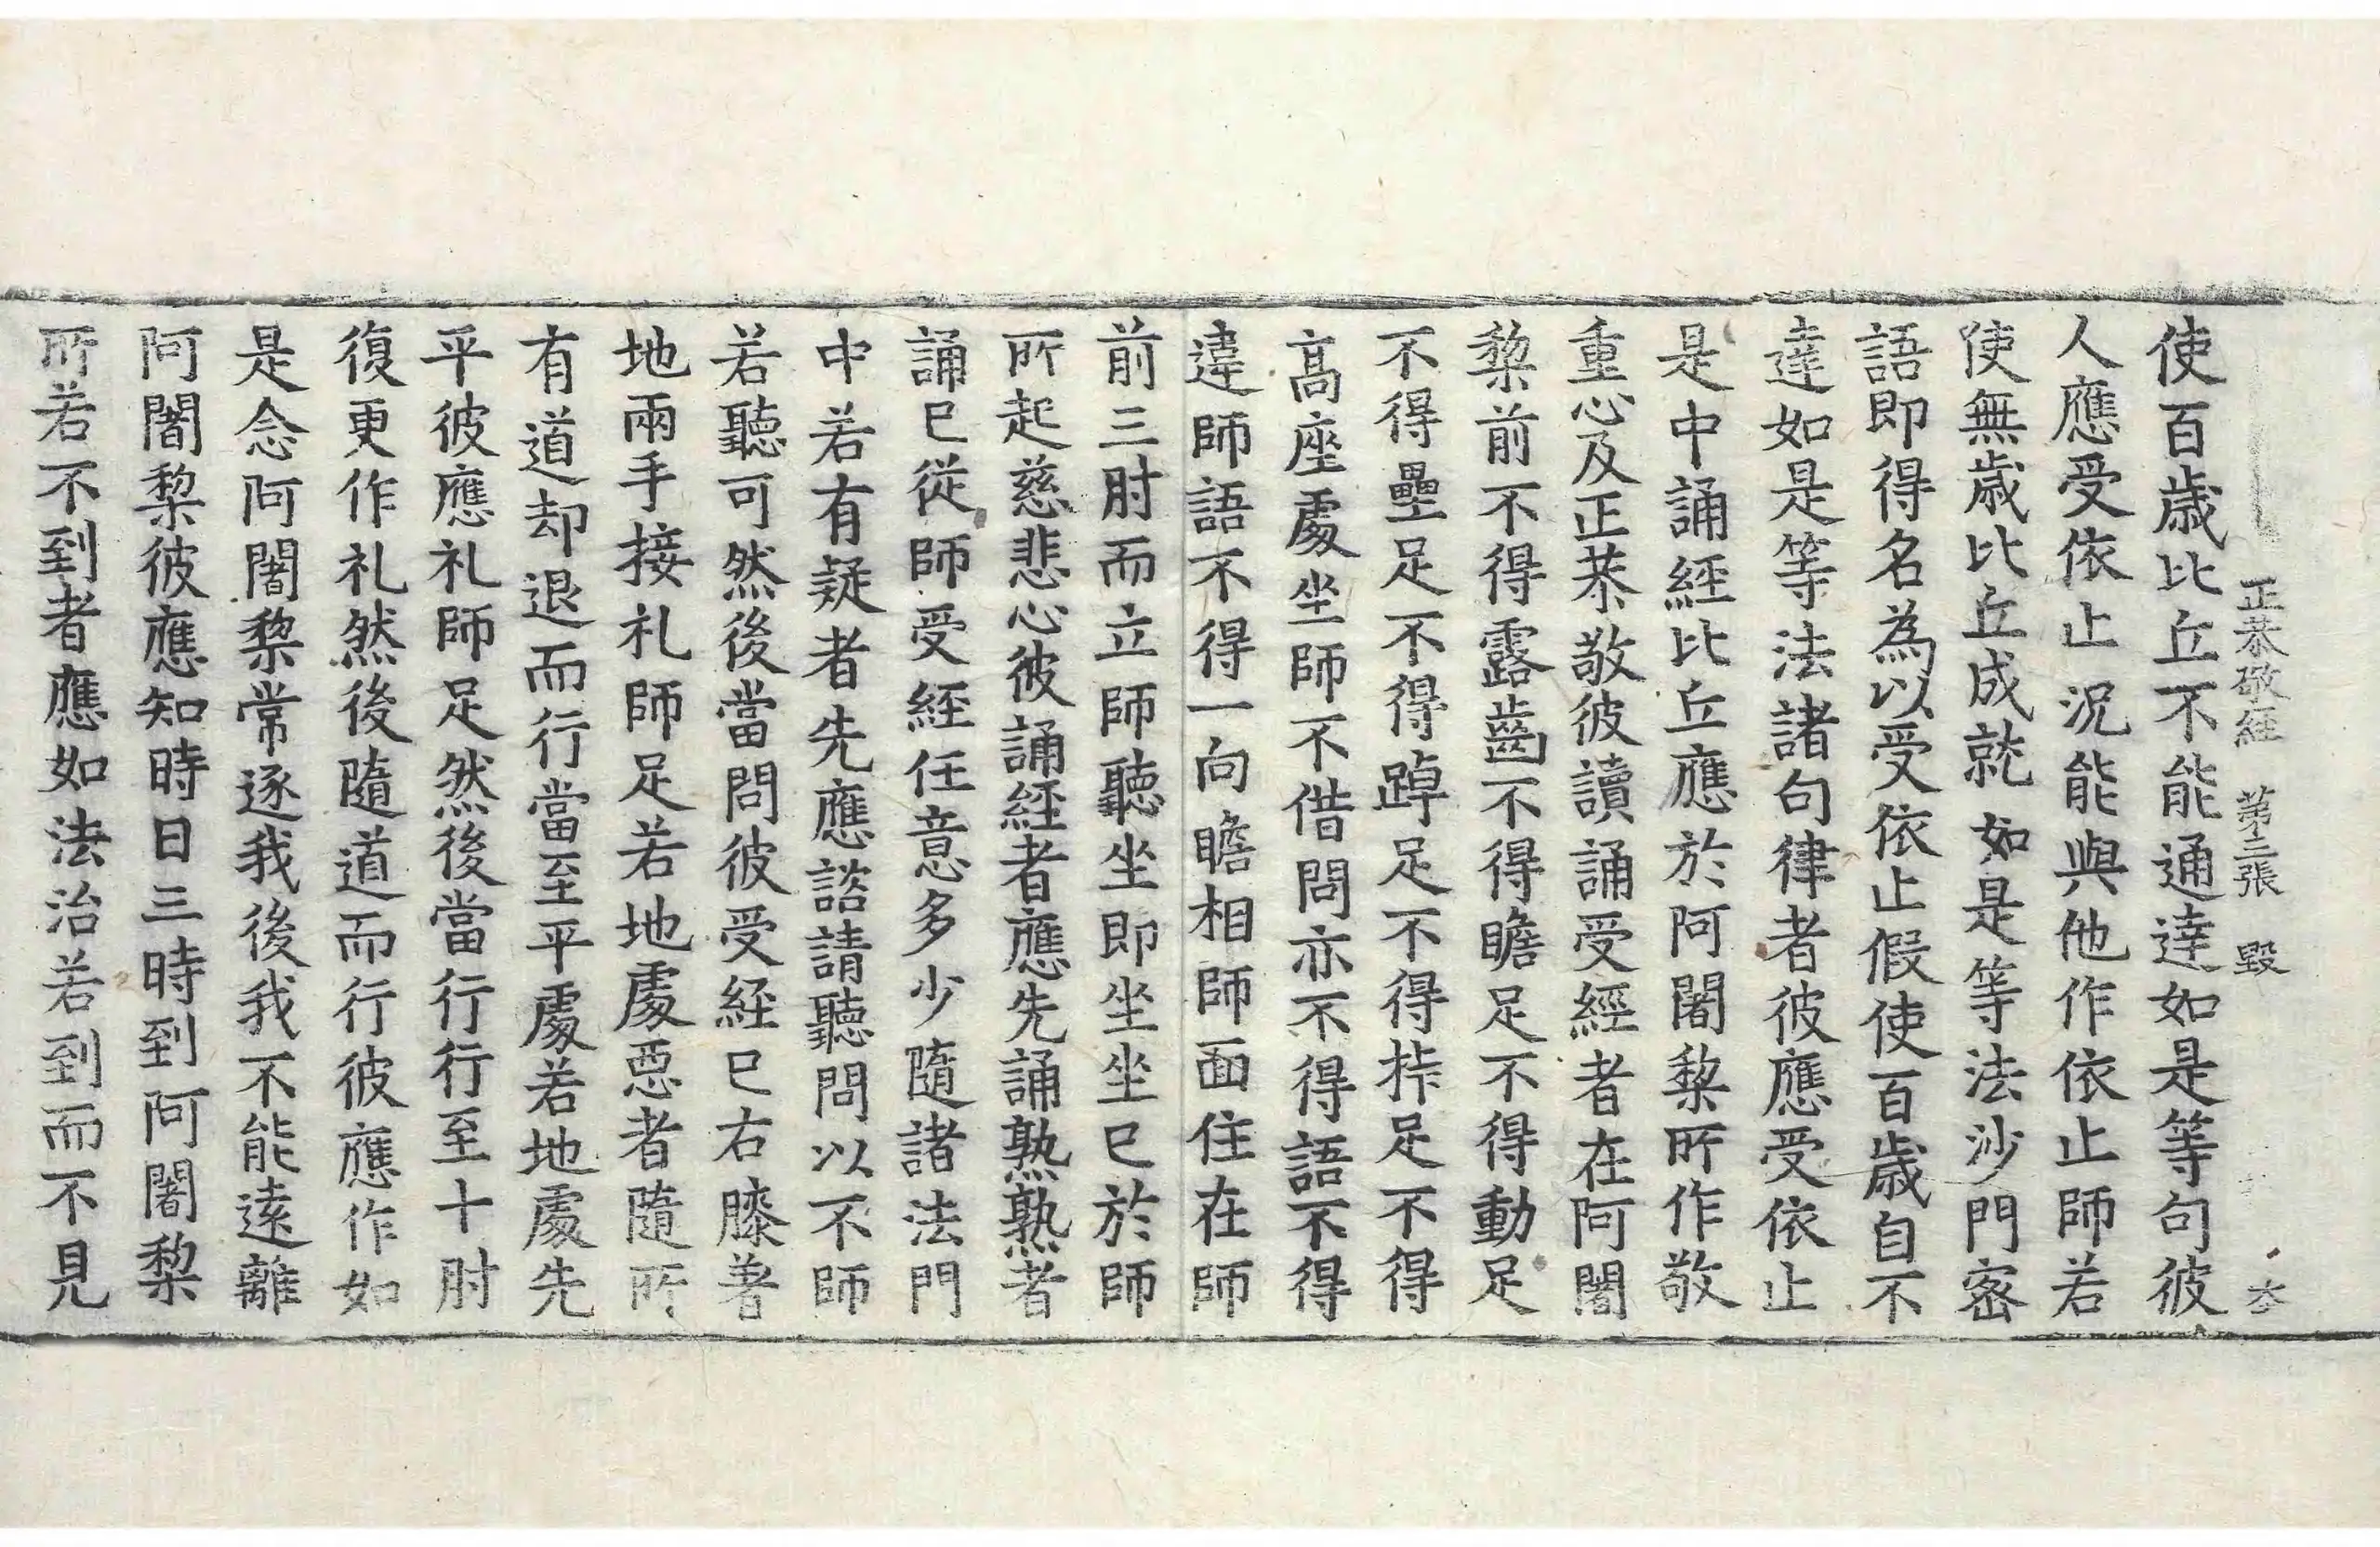 正恭敬經 第三張 毀
使百歲比丘不能通達如是等句彼
人應受依止況能與他作依止師若
使無歲比丘成就如是等法沙門密
語即得名為以受依止假使百歲自不
達如是等法諸句律者彼應受依止
是中誦經比丘應於阿闍梨所作敬
重心及正恭敬彼讀誦受經者在阿闍
梨前不得露齒不得瞻足不得動足
不得壘足不得踔足不得𣔻足不得
高座處坐師不借問亦不得語不得
違師語不得一向瞻相師面住在師
前三肘而立師聽坐即坐坐已於師
所起慈悲心彼誦経者應先誦熟熟者
誦已從師受経任意多少隨諸法門
中若有疑者先應諮請聽問以不師
若聽可然後當問彼受経已右膝著
地兩手接礼師足若地處惡者隨所
有道却退而行當至平處若地處先
平彼應礼師足然後當行行至十肘
復更作礼然後隨道而行彼應作如
是念阿闍梨常逐我後我不能遠離
阿闍梨彼應知時日三時到阿闍梨
所若不到者應如法治若到而不見